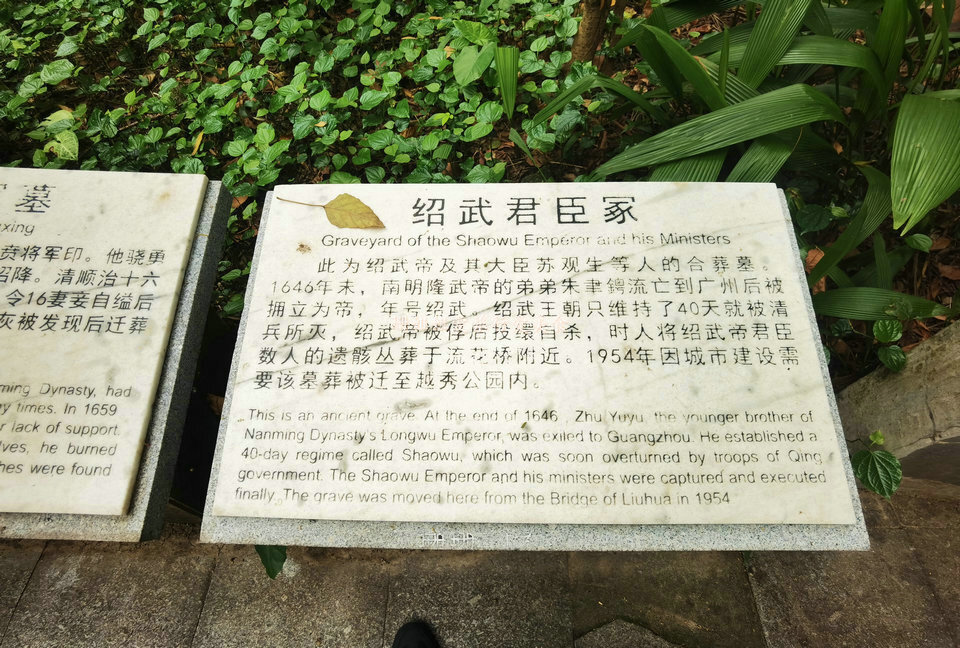 墓
xing
贲将军印。他骁勇
招降。清顺治十六
令16妻妾自缢后
灰被发现后迁葬
ming Dynasty, had
y times. In 1659
r lack of support.
lves, he burned
hes were found
绍武君臣冢
Graveyard of the Shaowu Emperor and his Ministers
此为绍武帝及其大臣苏观生等人的合葬墓。
1646年末，南明隆武帝的弟弟朱聿𨮁流亡到广州后被
拥立为帝，年号绍武。绍武王朝只维持了40天就被清
兵所灭，绍武帝被俘后投缳自杀，时人将绍武帝君臣
数人的遗骸丛葬于流花桥附近。1954年因城市建设需
要该墓葬被迁至越秀公园内。
This is an ancient grave. At the end of 1646 , Zhu Yuyu, the younger brother of
Nanming Dynasty's Longwu Emperor, was exiled to Guangzhou. He established a
40-day regime called Shaowu, which was soon overturned by troops of Qing
government. The Shaowu Emperor and his ministers were captured and executed
finally. The grave was moved here from the Bridge of Liuhua in 1954